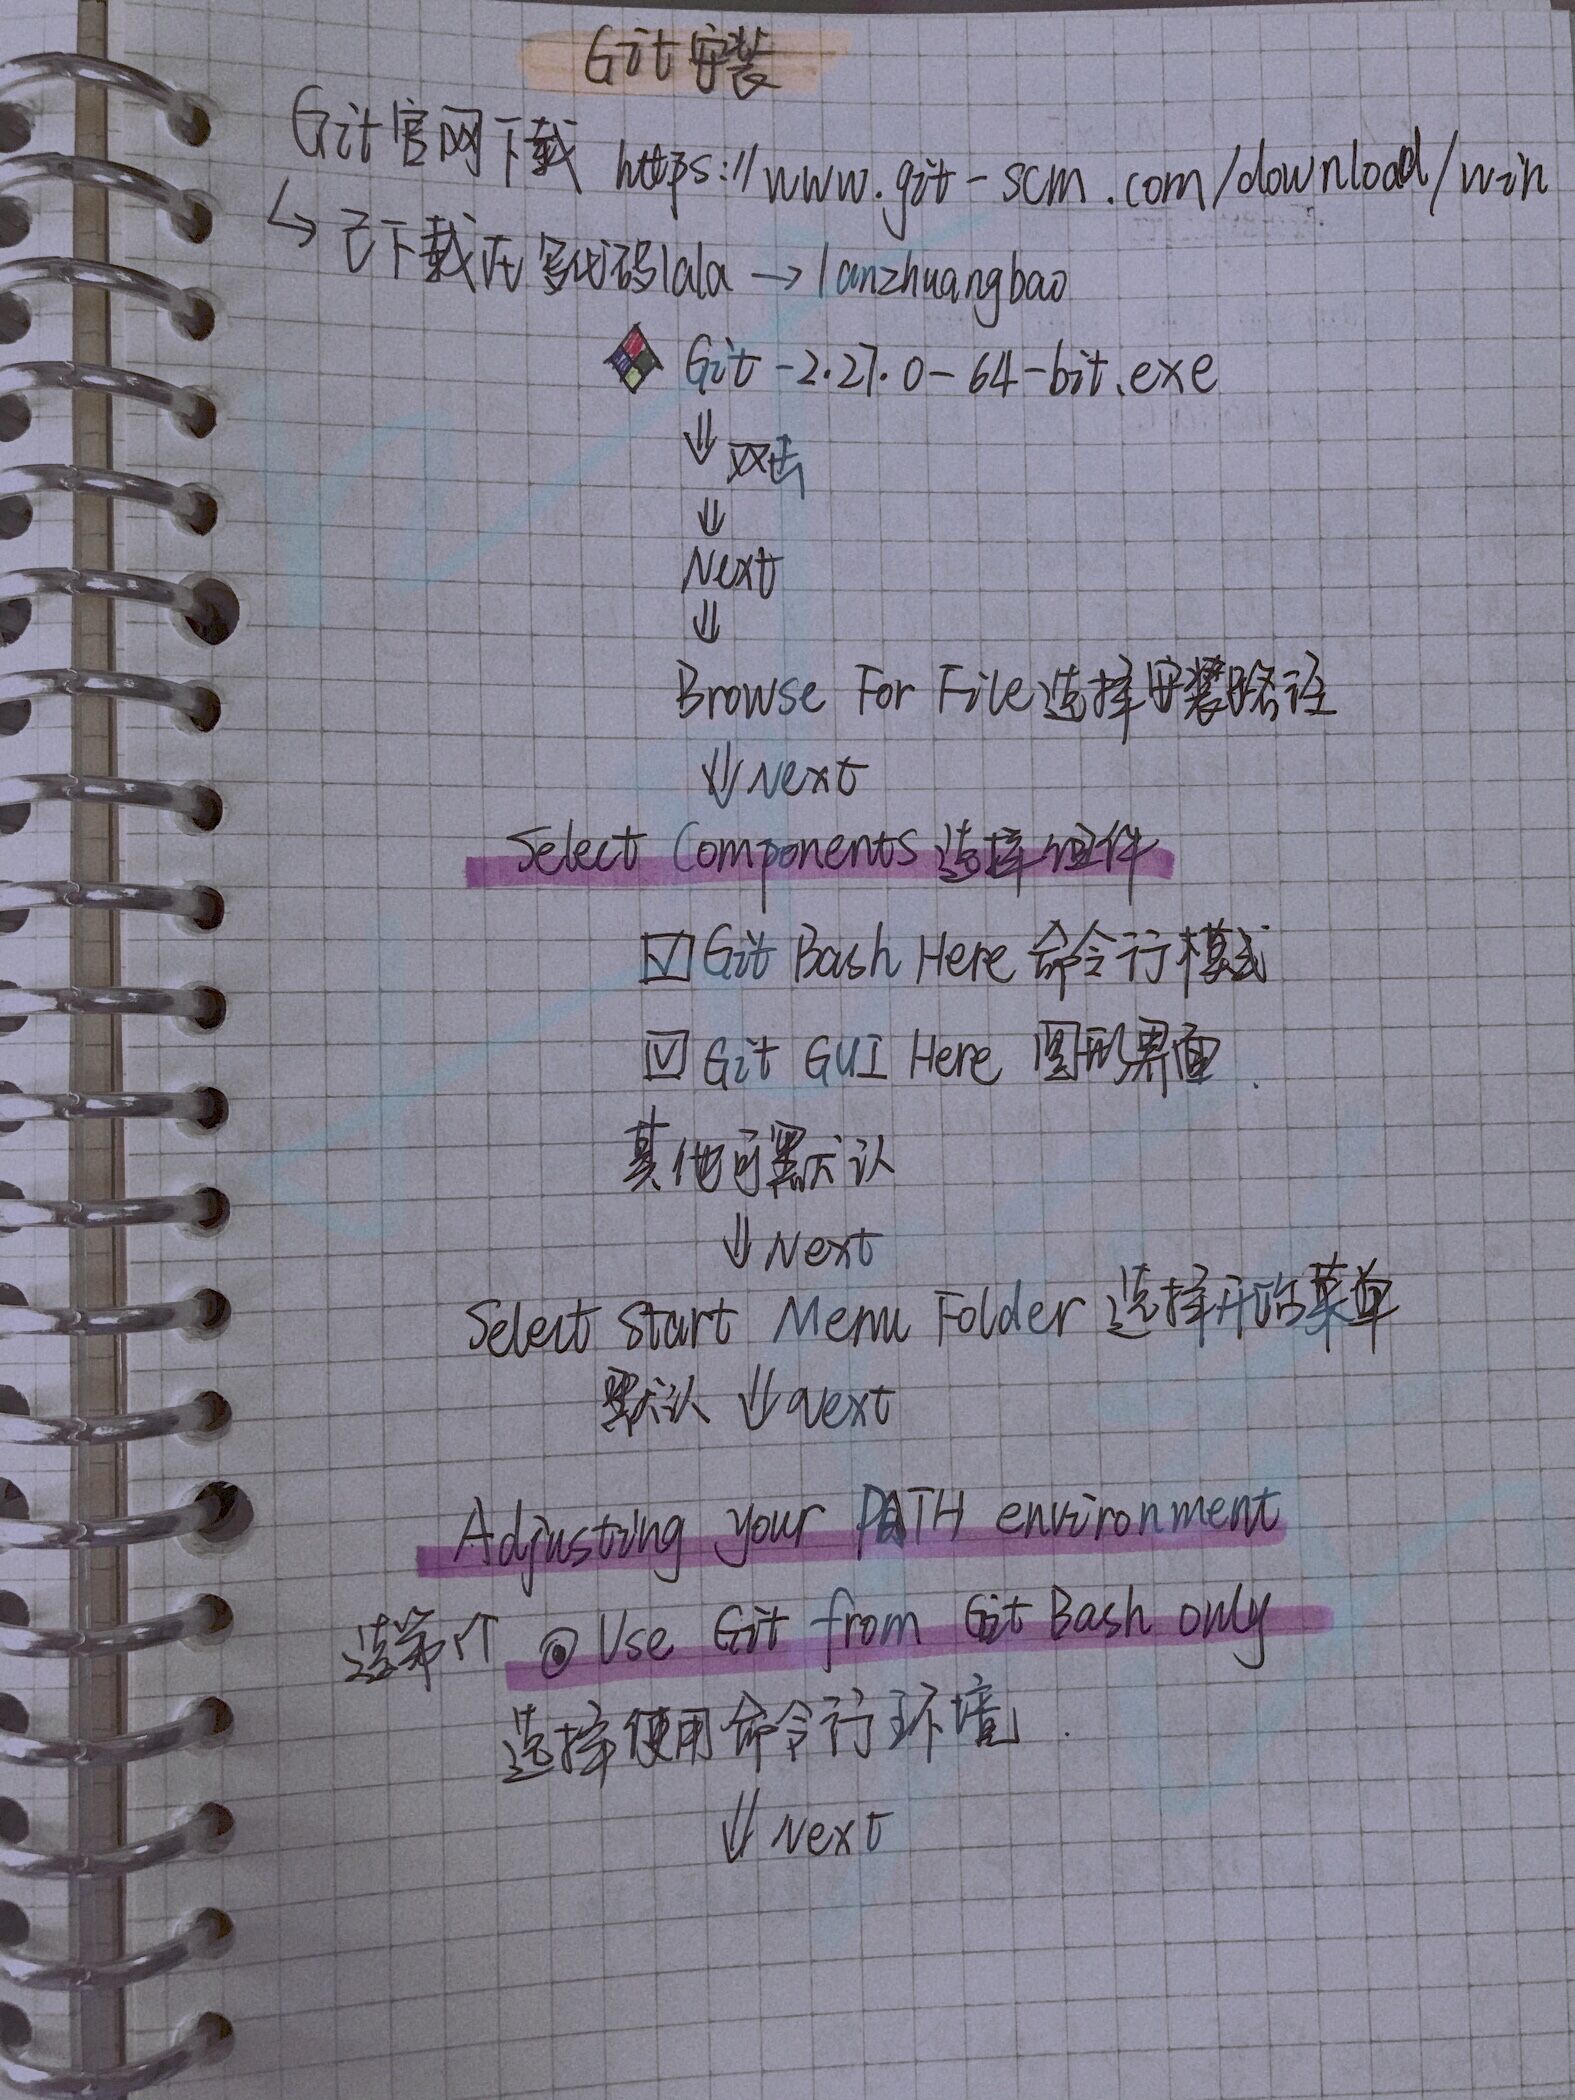 Git安装
Git官网下载 https://www.git-scm.com/download/win
↳ 已下载在写代码lala → lanzhuangbao
Git-2.27.0-64-bit.exe
⇓ 双击
⇓
Next
⇓
Browse For File选择安装路径
⇓ Next
Select Components 选择组件
☑ Git Bash Here 命令行模式
☑ Git GUI Here 图形界面.
其他可默认
⇓ Next
Select Start Menu Folder 选择开始菜单
默认 ⇓ next
Adjusting your PATH environment
选第1个 ⊙ Use Git from Git Bash only
选择使用命令行环境.
⇓ Next